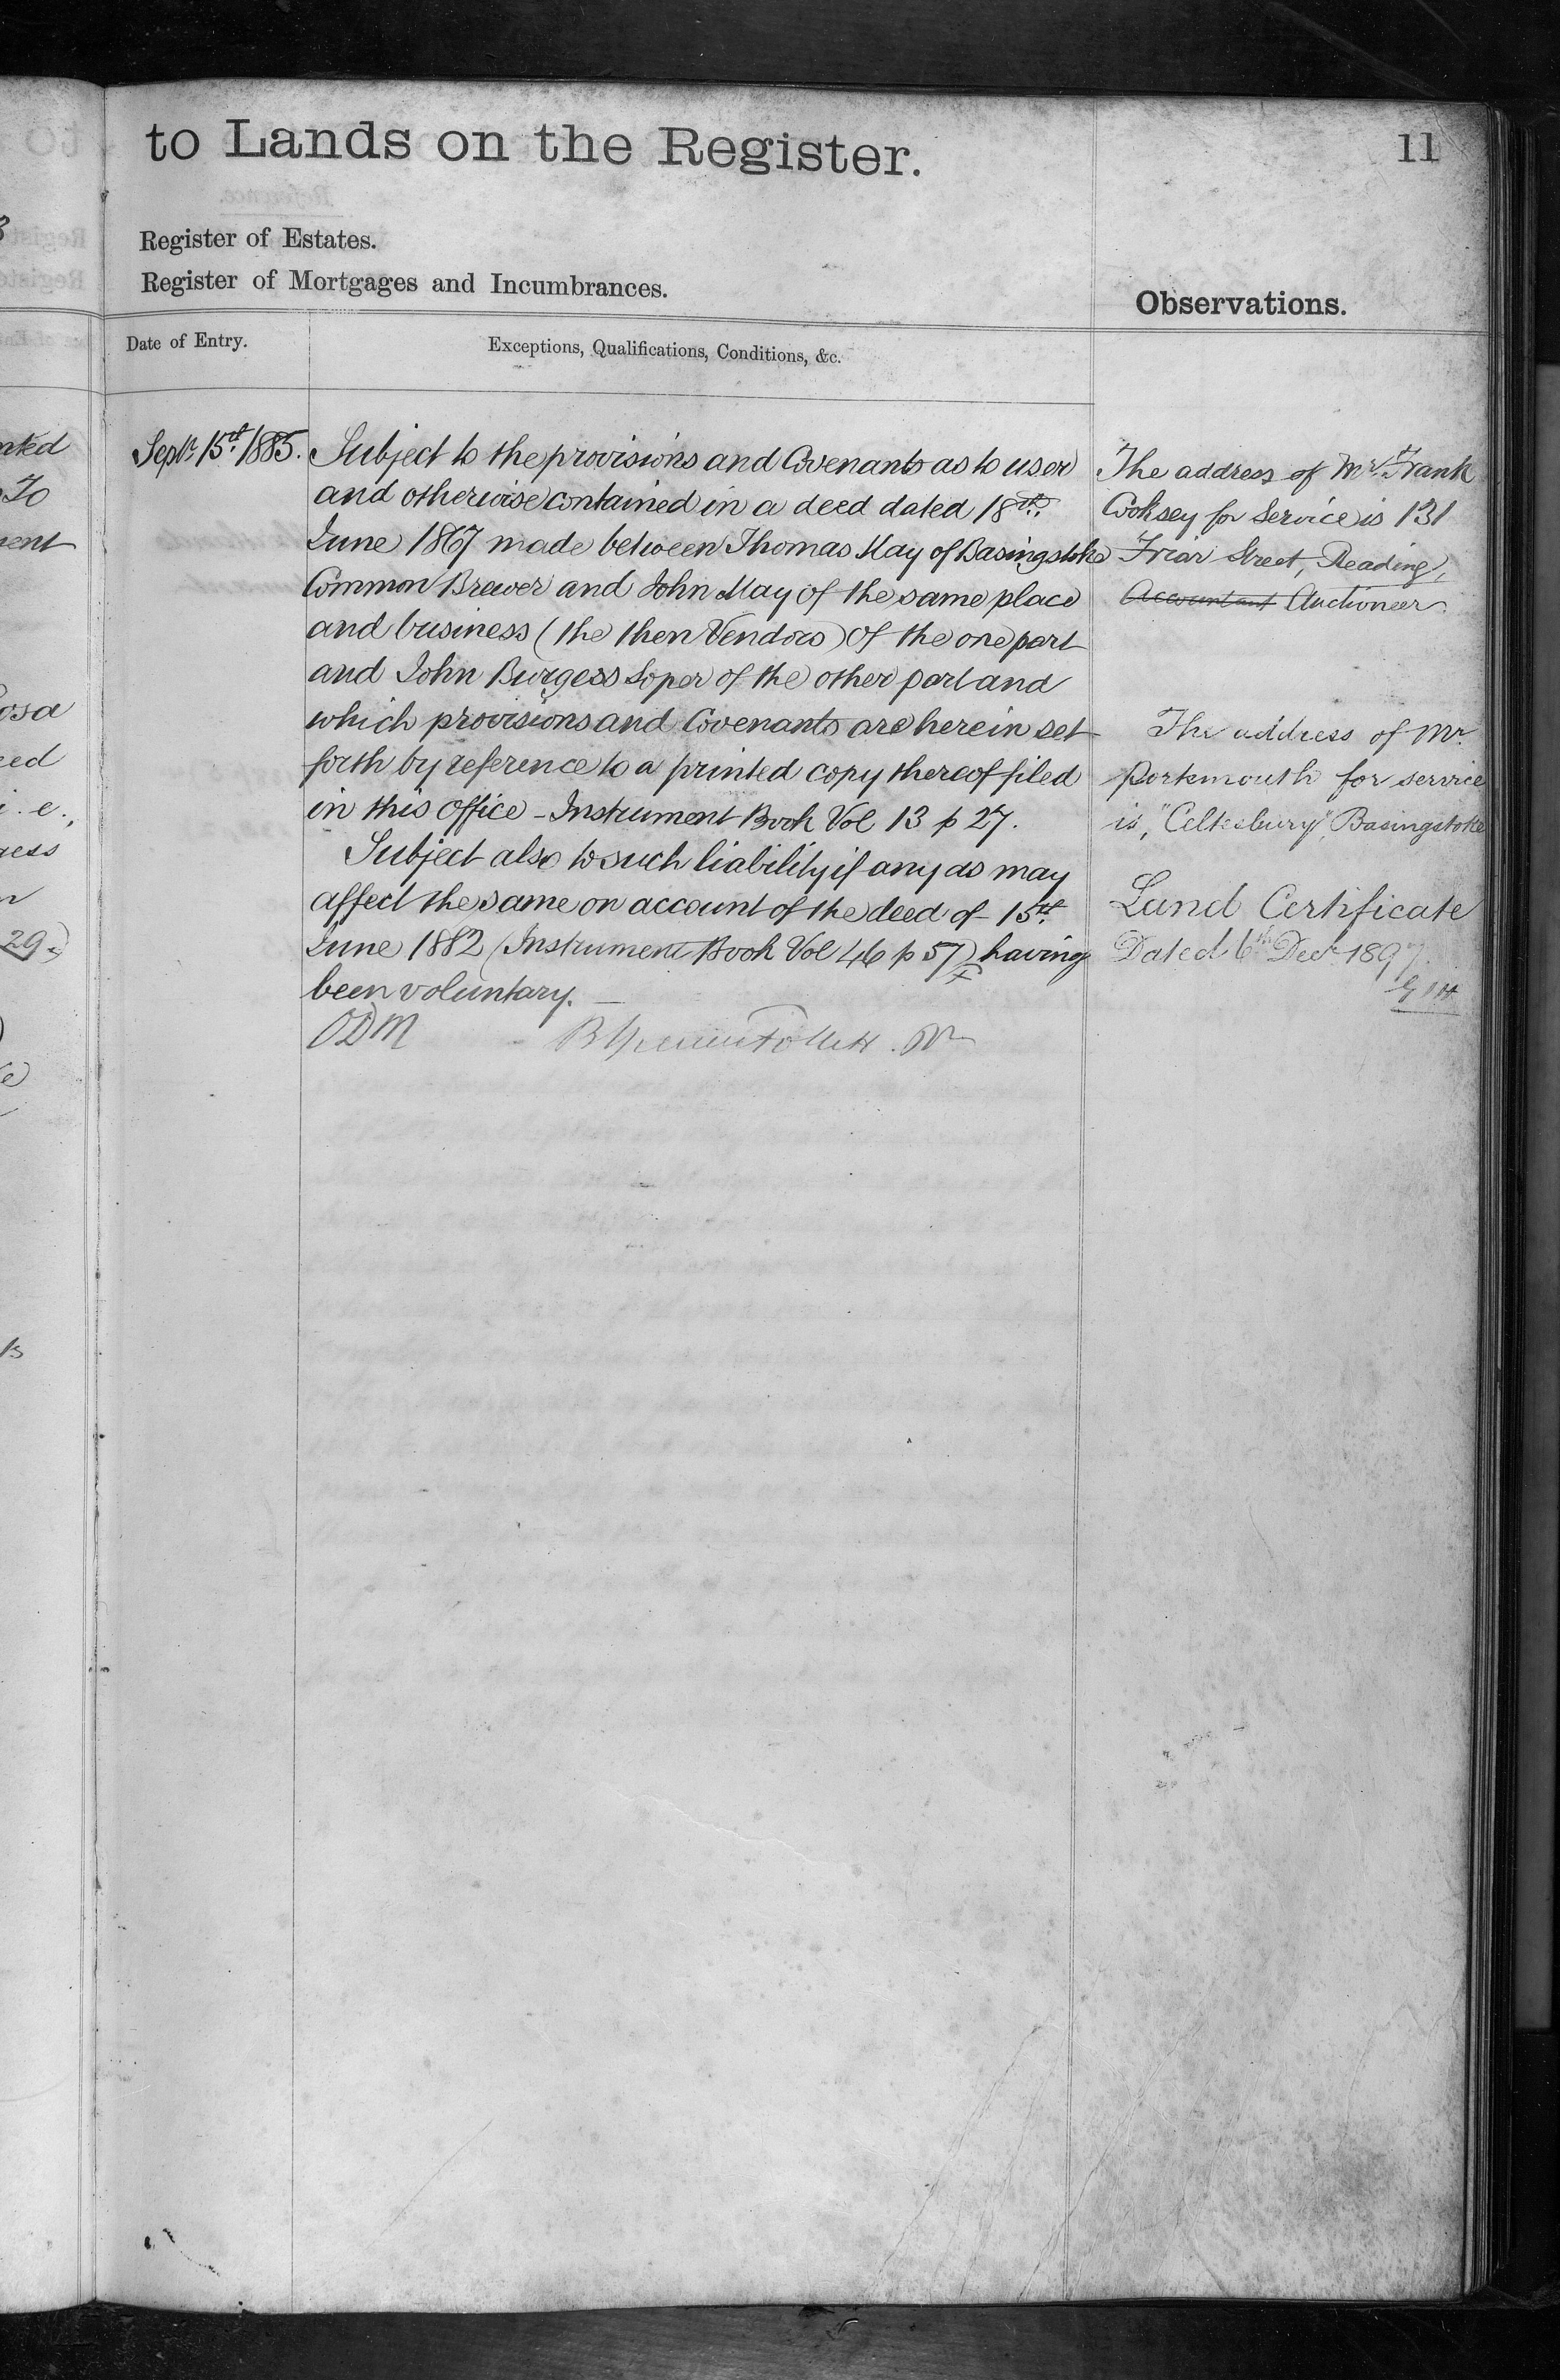 to Lands on the Register.
11
Register of Estates.
Register of Mortgages and Incumbrances.
Observations.
Date of Entry.
Exceptions, Qualifications, Conditions, &c.
Septr. 15th. 1885.
Subject to the provisions and Covenants as to user
and otherwise contained in a deed dated 18th.
June 1867 made between Thomas May of Basingstoke
Common Brewer and John May of the same place
and business (the then Vendors) of the one part
and John Burgess Soper of the other part and
which provisions and Covenants are herein set
forth by reference to a printed copy thereof filed
in this office - Instrument Book Vol 13 p 27.
Subject also to such liability if any as may
affect the same on account of the deed of 15th.
June 1882 (Instrument Book Vol 46 p 57) having
been voluntary.
ODM
The address of Mr. Frank
Cooksey for Service is 131
Friar Street, Reading,
Accountant Auctioneer.
The address of Mr.
Portsmouth for service
is, "Celtesbury" Basingstoke
Land Certificate
Dated 6th Decr 1897.
nted
To
ment
osa
eed
i.e.,
gess
29.)